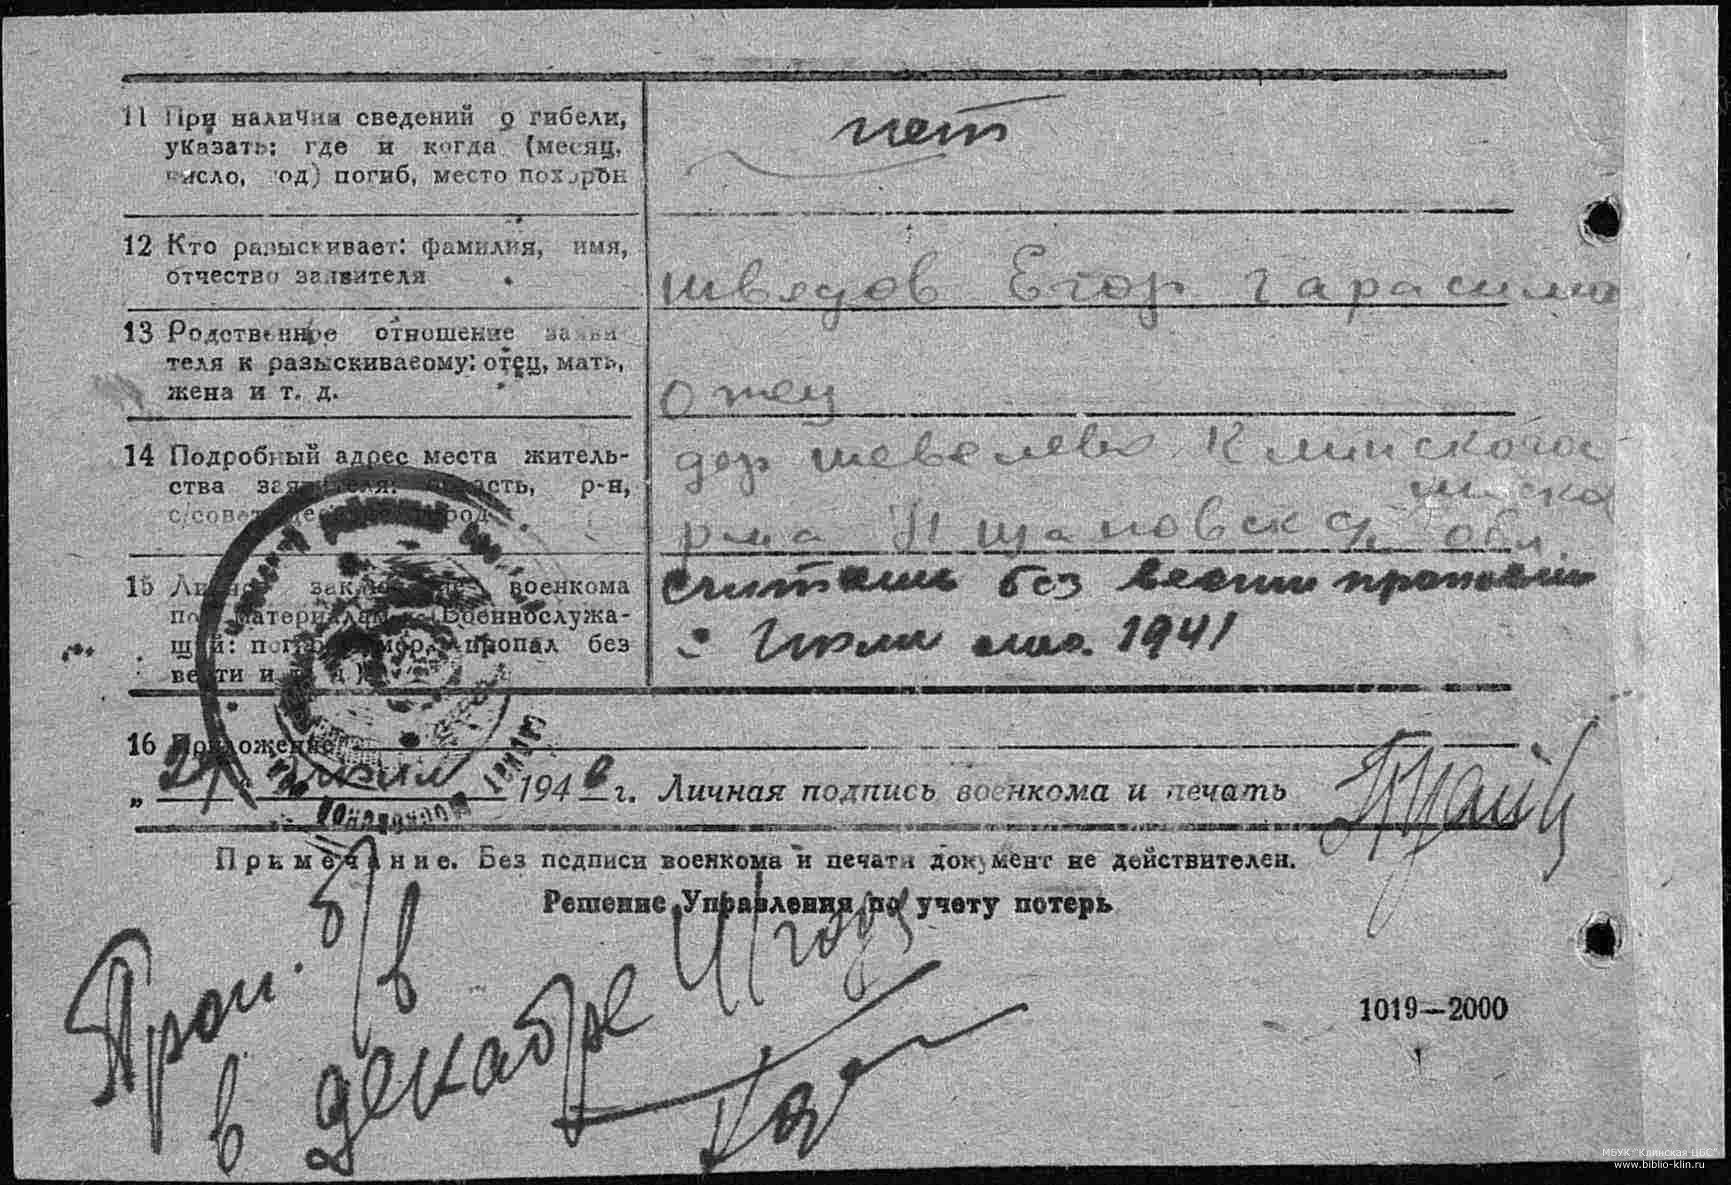 11 При наличии сведений о гибели,
указать: где и когда (месяц,
число, год) погиб, место похорон
нет
12 Кто разыскивает: фамилия, имя,
отчество заявителя
Шведов Егор Гарасимо
13 Родственное отношение заяви
теля к разыскиваемому: отец, мать,
жена и т. д.
отец
14 Подробный адрес места житель-
ства заявителя: область, р-н,
с/совет
дер Клинского
обл.
15 Личное заключение военкома
по материалам (Военнослужа-
щий: погиб, умер, пропал без
вести и т. д.)
считать без вести пропавшим
1941
16 Приложение
„24 июля 1946 г. Личная подпись военкома и печать
Примечание. Без подписи военкома и печати документ не действителен.
Решение Управления по учету потерь
Проп. б/в
в декабре 41 года
1019—2000
МБУК "Клинская ЦБС"
www.biblio-klin.ru